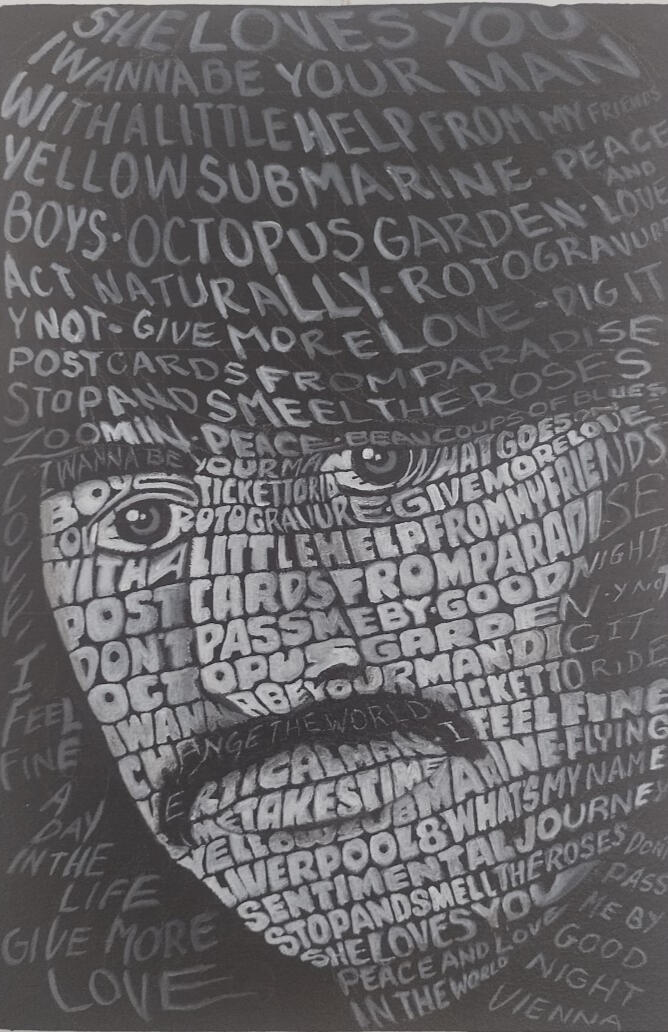 SHE LOVES YOU
I WANNA BE YOUR MAN
WITH A LITTLE HELP FROM MY FRIENDS
YELLOW SUBMARINE · PEACE
AND
BOYS · OCTOPUS GARDEN · LOVE
ACT NATURALLY - ROTOGRAVURE
Y NOT - GIVE MORE LOVE - DIG IT
POSTCARDS FROM PARADISE
STOP AND SMEEL THE ROSES
ZOOM IN · PEACE · BEAUCOUPS OF BLUES
I WANNA BE YOUR MAN WHAT GOES
BOYS TICKET TO RIDE GIVE MORE LOVE
LOVE ROTOGRAVURE
WITH A LITTLE HELP FROM MY FRIENDS
POST CARDS FROM PARADISE
DON'T PASS ME BY · GOOD NIGHT
OCTOPUS GARDEN · Y NOT
I WANNA BE YOUR MAN · DIG IT
CHANGE THE WORLD TICKET TO RIDE
I FEEL FINE
VERTICAL MAN
ME TAKES TIME
YELLOW SUBMARINE · FLYING
LIVERPOOL 8 · WHAT'S MY NAME
SENTIMENTAL JOURNEY
STOP AND SMELL THE ROSES
SHE LOVES YOU
PEACE AND LOVE
IN THE WORLD
LOVE
I
FEEL
FINE
A
DAY
IN THE
LIFE
GIVE MORE
LOVE
DON'T
PASS
ME BY
GOOD
NIGHT
VIENNA